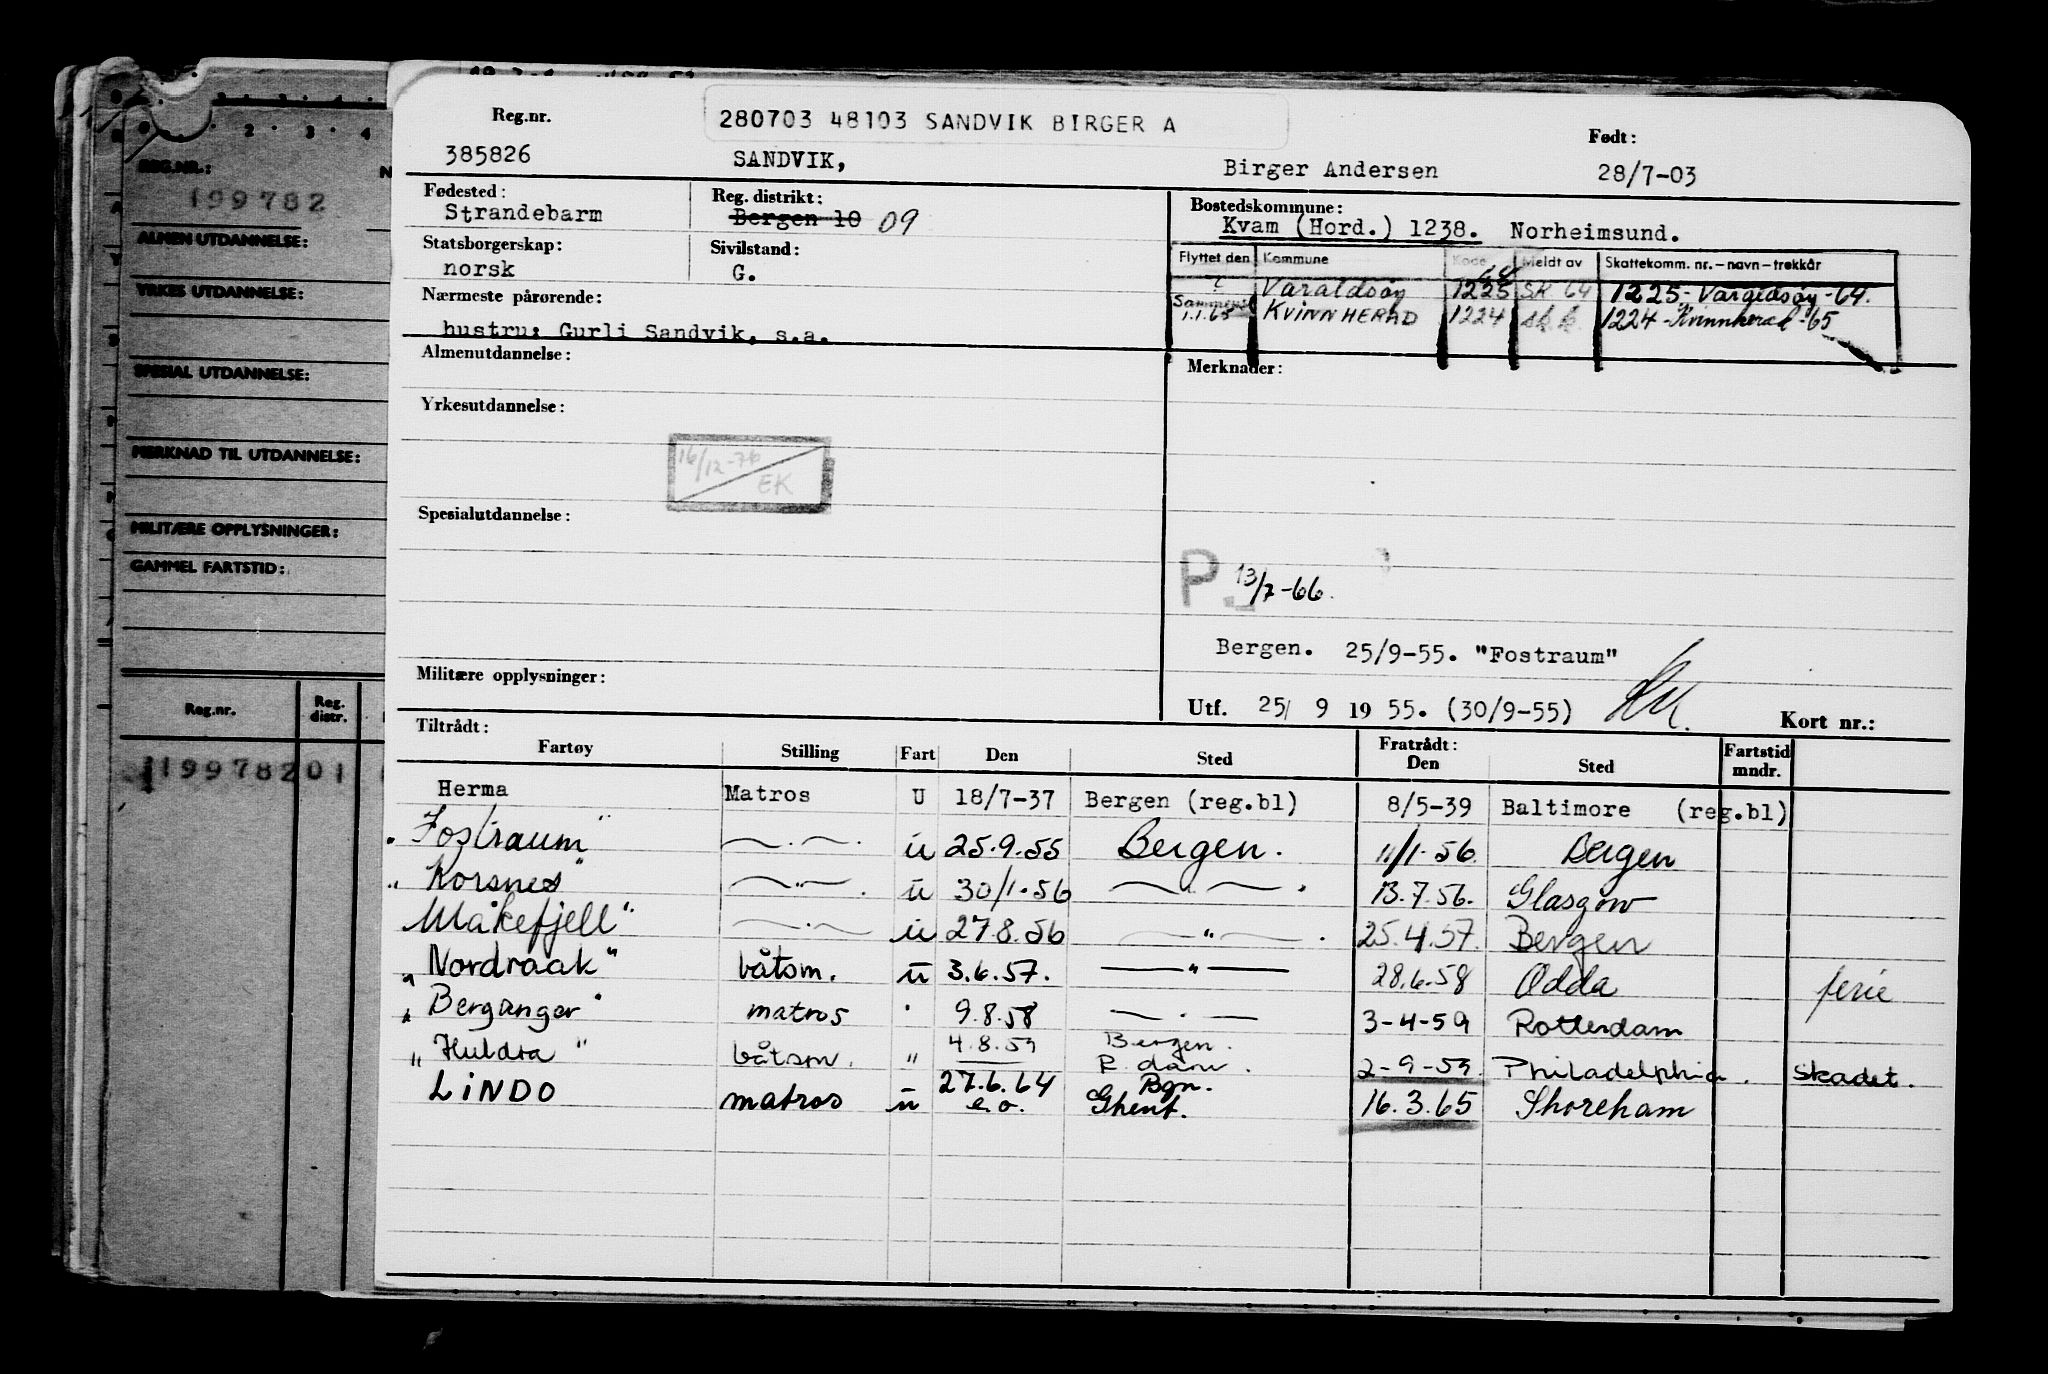 2 3 4
REG.NR.: N
199782
ALMEN UTDANNELSE:
YRKES UTDANNELSE:
SPESIAL UTDANNELSE:
MERKNAD TIL UTDANNELSE:
MILITÆRE OPPLYSNINGER:
GAMMEL FARTSTID:
Reg.nr. Reg. distr.
19978201
Reg.nr. 280703 48103 SANDVIK BIRGER A Født:
385826 SANDVIK, Birger Andersen 28/7-03
Fødested: Reg. distrikt: Bostedskommune:
Strandebarm Bergen 10 09 Kvam (Hord.) 1238. Norheimsund.
Statsborgerskap: Sivilstand: Flyttet den Kommune Kode Meldt av Skattekomm. nr.-navn-trekkår
norsk G. ? Varaldsøy 1225 64 SK 64 1225-Varaldsøy-64.
Nærmeste pårørende: 1.1.65 KVINNHERAD 1224 1224-Kvinnherad-65
hustru: Gurli Sandvik, s.a.
Almenutdannelse: Merknader:
Yrkesutdannelse:
16/12-76 EK
Spesialutdannelse:
P 13/7-66.
Bergen. 25/9-55. "Fostraum"
Militære opplysninger:
Utf. 25/ 9 19 55. (30/9-55) Kort nr.:
Tiltrådt: Fratrådt:
Fartøy Stilling Fart Den Sted Den Sted Fartstid mndr.
Herma Matros U 18/7-37 Bergen (reg.bl) 8/5-39 Baltimore (reg.bl)
"Fostraum" —"— u 25.9.55 Bergen. 11/1-56. Bergen
"Korsnes" —"— . u 30/1-56 —"— . 13.7.56. Glasgow
Måkefjell" —"— u 27.8.56 —"— . 25.4.57. Bergen
"Nordraak" båtsm. u 3.6.57. —"— 28.6.58 Odda ferie
"Beranger" matros " 9.8.58 —"— 3-4-59 Rotterdam
"Huldra" båtsm. " 4.8.59 Bergen. R.dam. 2-9-59. Philadelphia. skadet.
LINDO matros u 27.6.64 e.o. Bgn. Ghent. 16.3.65 Shoreham